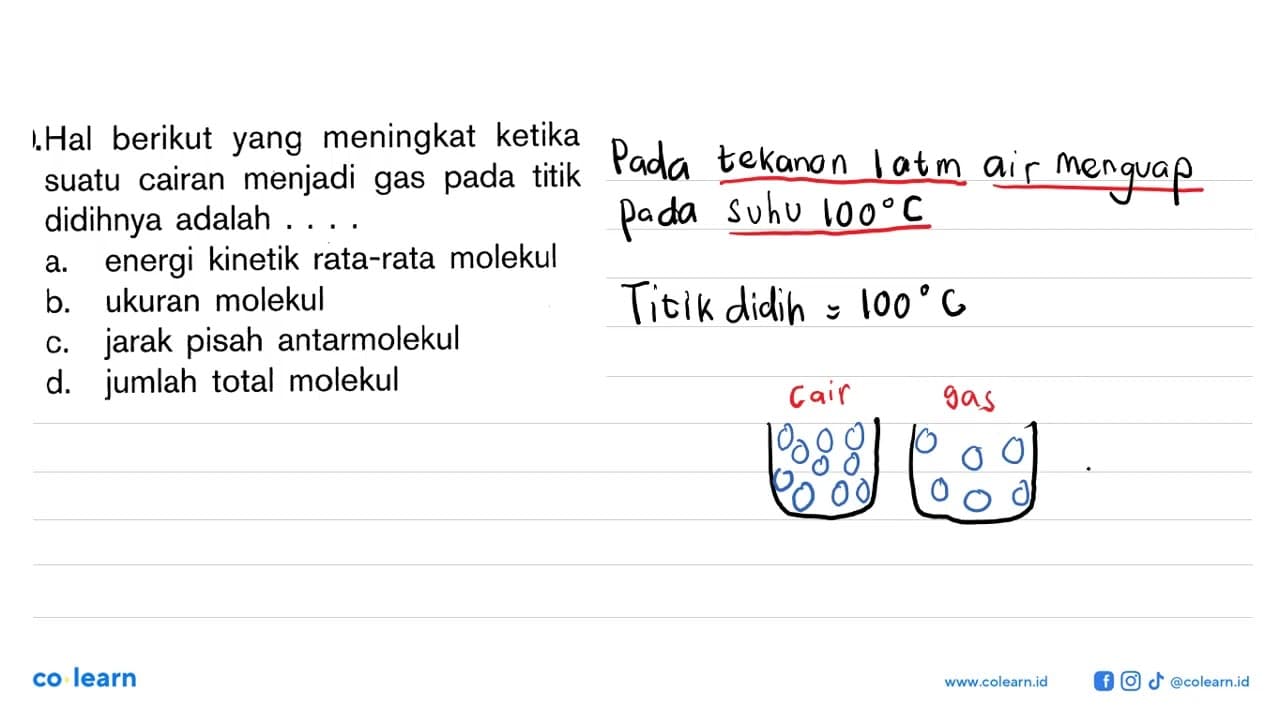 .Hal berikut yang meningkat ketika
suatu cairan menjadi gas pada titik
didihnya adalah . . . .
a. energi kinetik rata-rata molekul
b. ukuran molekul
c. jarak pisah antarmolekul
d. jumlah total molekul
Pada tekanan 1 atm air menguap
pada suhu 100°C
Titik didih = 100°C
cair gas
co learn
www.colearn.id @colearn.id